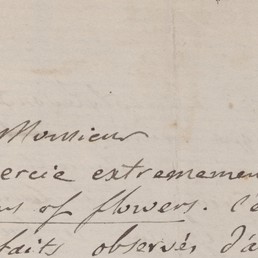 Monsieur
ercie extrememen
of flowers. C'e
faits observés d'a